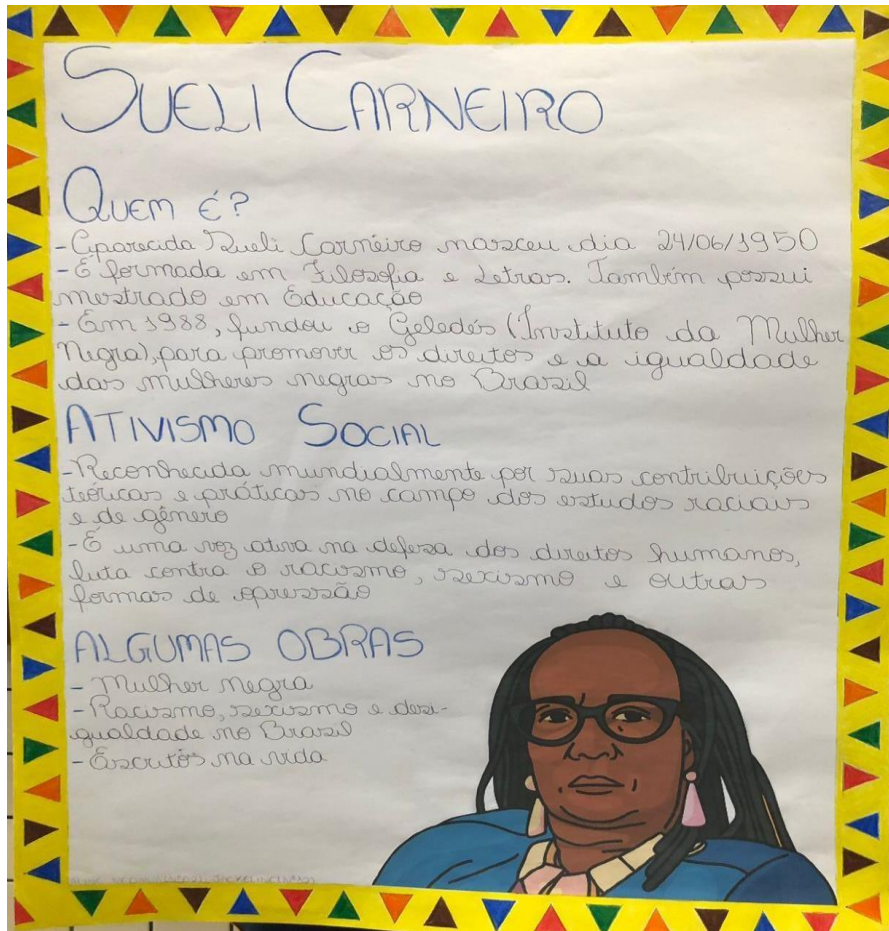 SUELI CARNEIRO
QUEM É?
- Aparecida Sueli Carneiro nasceu dia 24/06/1950
- É formada em Filosofia e Letras. Também possui
mestrado em Educação
- Em 1988, fundou o Geledés (Instituto da Mulher
Negra), para promover os direitos e a igualdade
das mulheres negras no Brasil
ATIVISMO SOCIAL
- Reconhecida mundialmente por suas contribuições
teóricas e práticas no campo dos estudos raciais
e de gênero
- É uma voz ativa na defesa dos direitos humanos,
luta contra o racismo, sexismo e outras
formas de opressão
ALGUMAS OBRAS
- Mulher negra
- Racismo, sexismo e desi-
gualdade no Brasil
- Escritos na vida